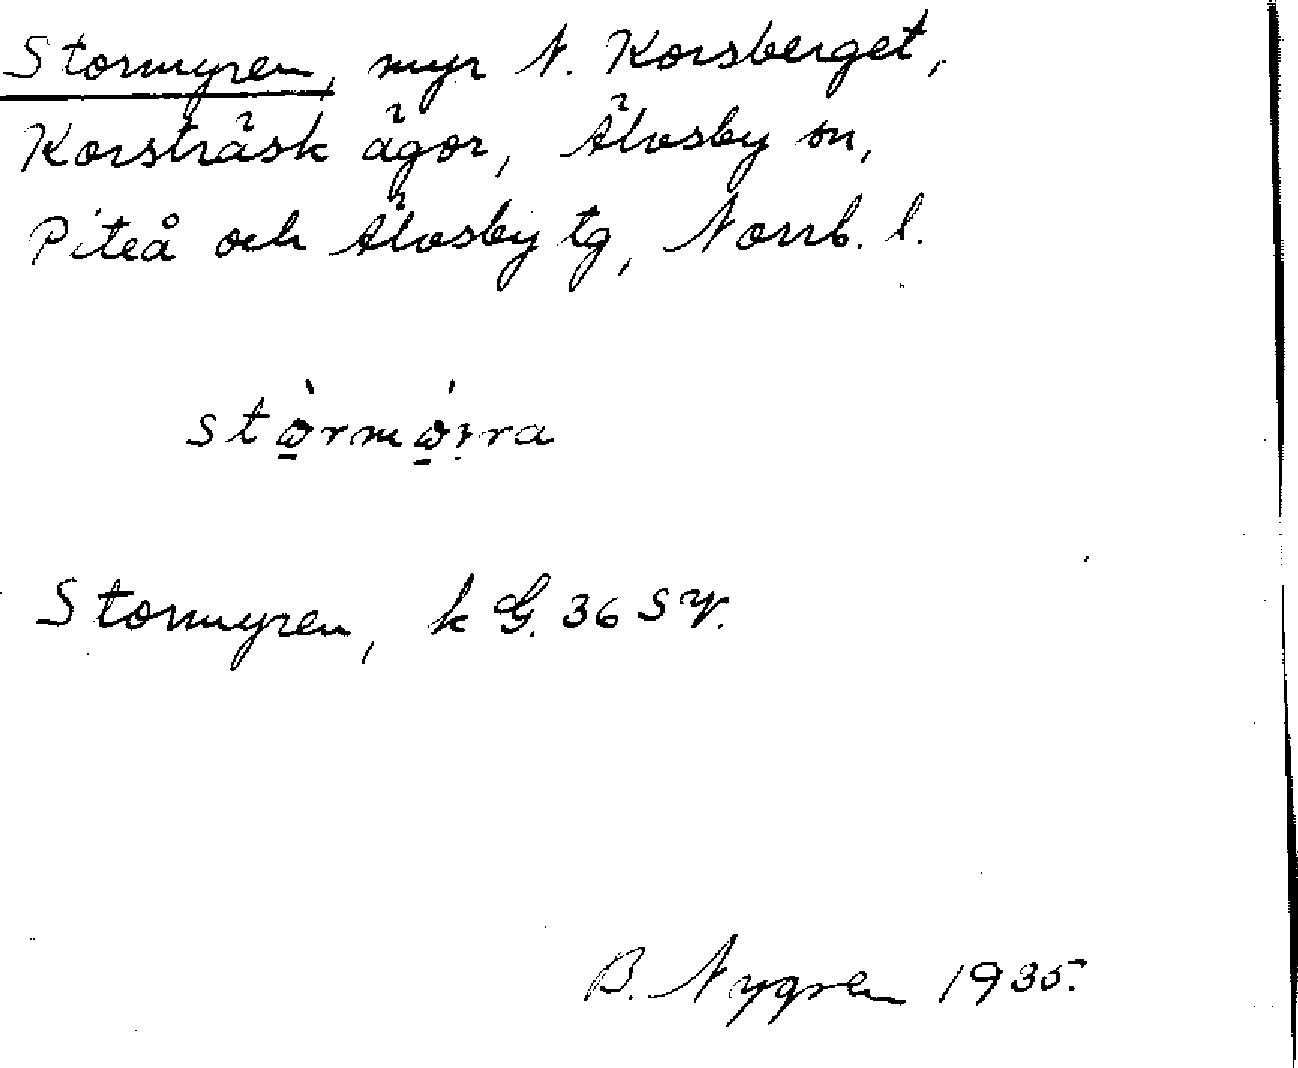 Stormyren, myr N. Korsberget,
Korsträsk ägor, Älvsby sn,
Piteå och Älvsby tg, Norrb. l.
Stormyren, k G. 36 SV.
B. Nygren 1935.